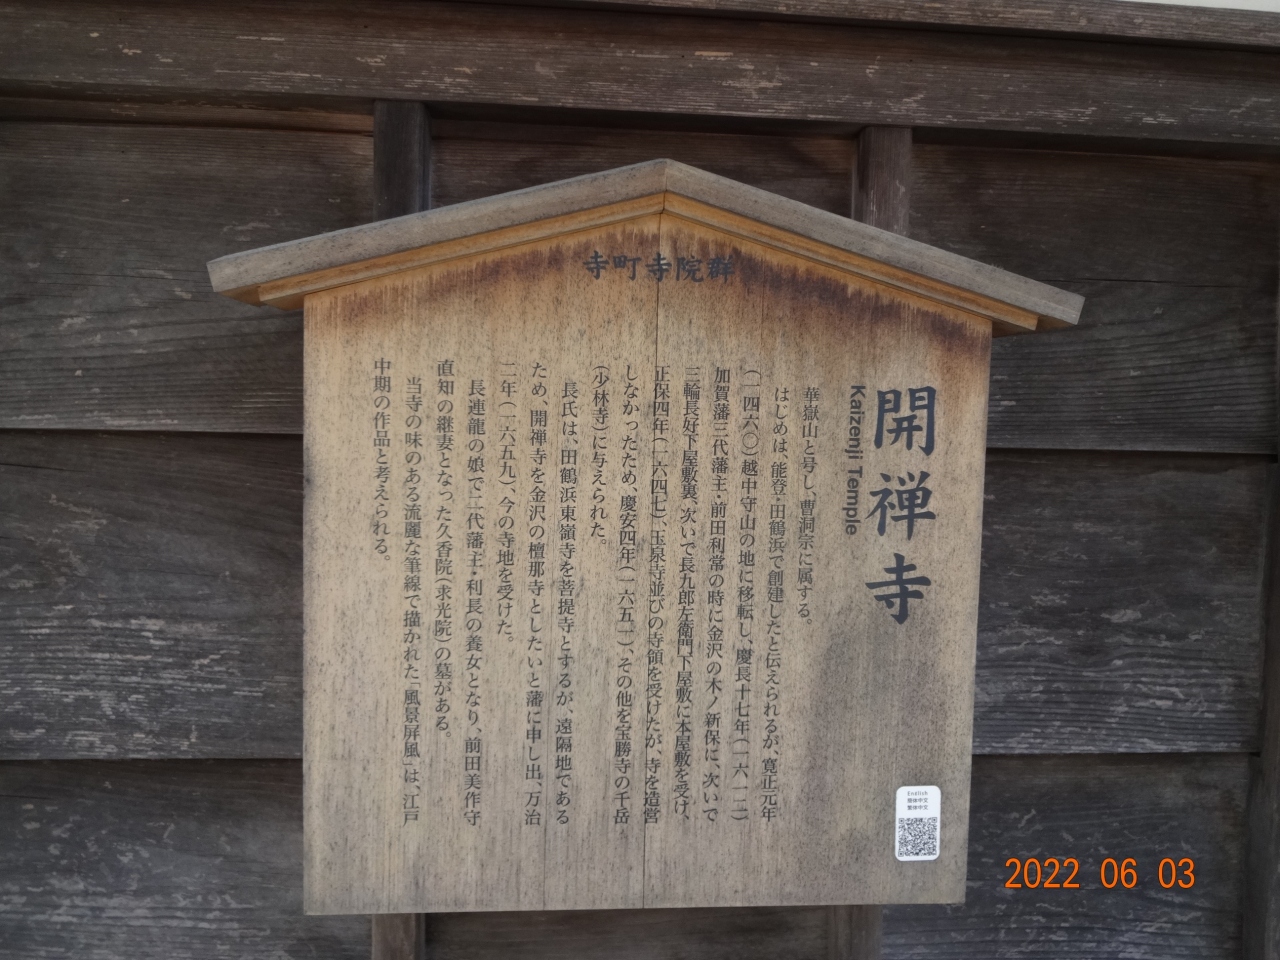 寺町寺院群
開禅寺
Kaizenji Temple
華嶽山と号し、曹洞宗に属する。
はじめは、能登・田鶴浜で創建したと伝えられるが、寛正元年
(一四六〇)越中守山の地に移転し、慶長十七年(一六一二)
加賀藩三代藩主・前田利常の時に金沢の木ノ新保に、次いで
三輪長好下屋敷裏、次いで長九郎左衛門下屋敷に本屋敷を受け、
正保四年(一六四七)、玉泉寺並びの寺領を受けたが、寺を造営
しなかったため、慶安四年(一六五一)、その他を宝勝寺の千岳
(少林寺)に与えられた。
長氏は、田鶴浜東嶺寺を菩提寺とするが、遠隔地である
ため、開禅寺を金沢の檀那寺としたいと藩に申し出、万治
二年(一六五九)、今の寺地を受けた。
長連龍の娘で二代藩主・利長の養女となり、前田美作守
直知の継妻となった久香院(求光院)の墓がある。
当寺の味のある流麗な筆線で描かれた「風景屏風」は、江戸
中期の作品と考えられる。
English
簡体中文
繁体中文
2022 06 03